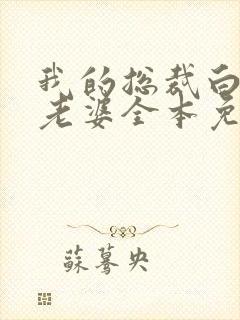 我的总裁白
老婆全本免
蘇蓦央